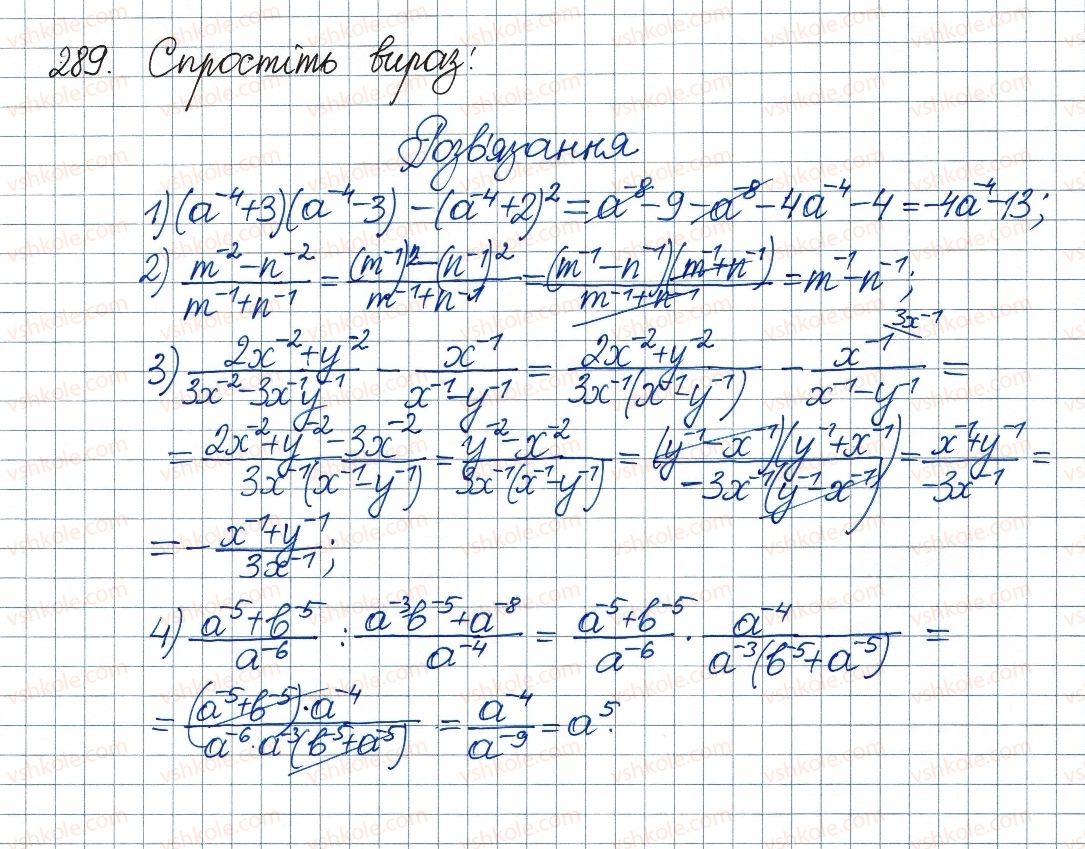 289. Спростіть вираз:
Розв'язання
1) (a⁻⁴+3)(a⁻⁴-3) - (a⁻⁴+2)² = a⁻⁸ - 9 - a⁻⁸ - 4a⁻⁴ - 4 = -4a⁻⁴ - 13;
2) (m⁻² - n⁻²)/(m⁻¹ + n⁻¹) = ((m⁻¹)² - (n⁻¹)²)/(m⁻¹ + n⁻¹) = ((m⁻¹ - n⁻¹)(m⁻¹ + n⁻¹))/(m⁻¹ + n⁻¹) = m⁻¹ - n⁻¹;
3) (2x⁻² + y⁻²)/(3x⁻² - 3x⁻¹y⁻¹) - x⁻¹/(x⁻¹ - y⁻¹) = (2x⁻² + y⁻²)/(3x⁻¹(x⁻¹ - y⁻¹)) - x⁻¹/(x⁻¹ - y⁻¹) \ 3x⁻¹ =
= (2x⁻² + y⁻² - 3x⁻²)/(3x⁻¹(x⁻¹ - y⁻¹)) = (y⁻² - x⁻²)/(3x⁻¹(x⁻¹ - y⁻¹)) = ((y⁻¹ - x⁻¹)(y⁻¹ + x⁻¹))/(-3x⁻¹(y⁻¹ - x⁻¹)) = (x⁻¹ + y⁻¹)/(-3x⁻¹) =
= - (x⁻¹ + y⁻¹)/(3x⁻¹);
4) (a⁻⁵ + b⁻⁵)/a⁻⁶ : (a⁻³b⁻⁵ + a⁻⁸)/a⁻⁴ = (a⁻⁵ + b⁻⁵)/a⁻⁶ · a⁻⁴/(a⁻³(b⁻⁵ + a⁻⁵)) =
= ((a⁻⁵ + b⁻⁵) · a⁻⁴)/(a⁻⁶ · a⁻³(b⁻⁵ + a⁻⁵)) = a⁻⁴/a⁻⁹ = a⁵.
vshkole.com